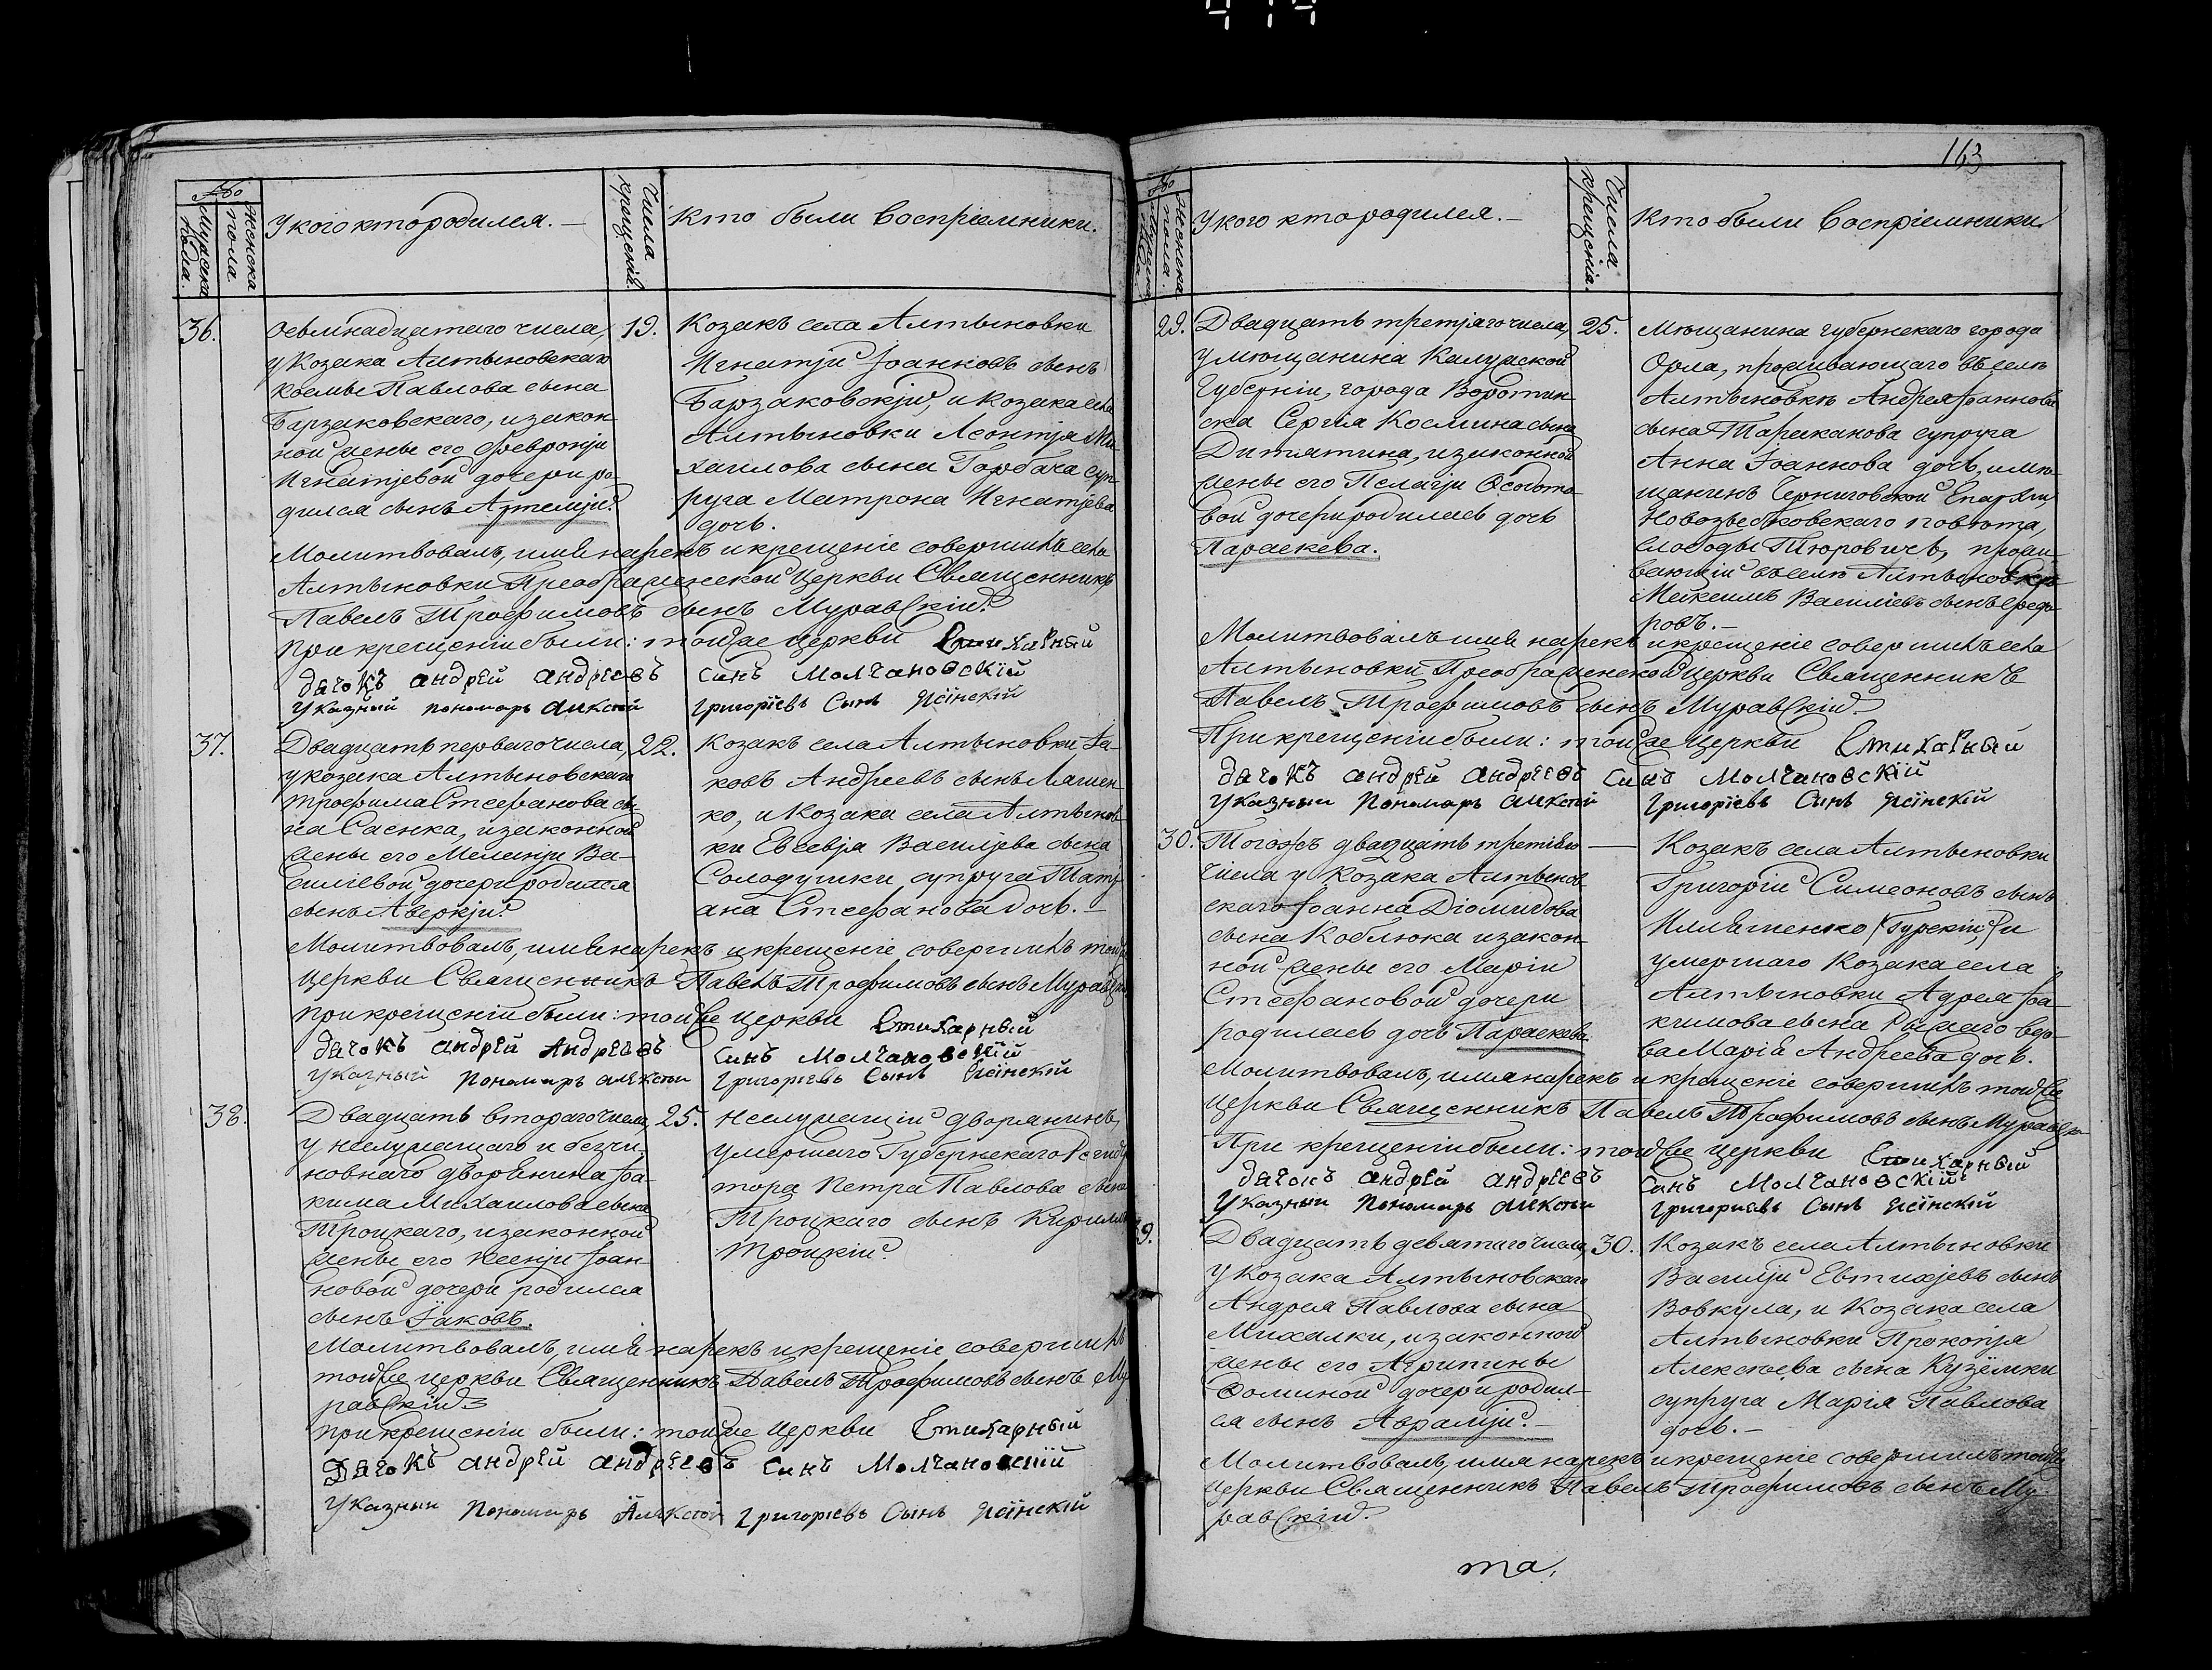 №
Мужеска пола.
Женска пола
У кого кто родился. —
Числа крещенія.
Кто были Воспріемники.
36.
Осьмнадцатого числа,
у Козака Алтыновскаго
Космы Павлова сына
Барзаковскаго, и закон-
ной жены его Февроніи
Игнатіевой дочери ро-
дился сынъ Артемій.
19.
Козакъ села Алтыновки
Игнатій Іоанновъ сынъ
Барзаковскій, и Козака села
Алтыновки Леонтія Ми-
хаилова сына Горбача суп-
руга Матрона Игнатіева
дочь.
Молитвовалъ, имя нарекъ и крещеніе совершилъ села
Алтыновки Преображенской Церкви Священникъ
Павелъ Трофимовъ сынъ Муравскій.
При крещеніи были: тойже Церкви Стихарный
дячокъ андрей андреевъ синъ Молчановскій
Указный пономарь Алексѣй Григоріевъ Сынъ Ясѣнскій
37.
Двадцать перваго числа,
у козака Алтыновскаго
Трофима Стефанова сы-
на Саенка, и законной
жены его Меланіи Ва-
силіевой дочери родился
сынъ Аверкій.
22.
Козакъ села Алтыновки Іа-
ковъ Андреевъ сынъ Ляшен-
ко, и Козака села Алтынов-
ки Евсевія Василіева сына
Солодушки супруга Таті-
ана Стефанова дочь. —
Молитвовалъ, имя нарекъ и крещеніе совершилъ тойже
Церкви Священникъ Павелъ Трофимовъ сынъ Муравскій
При крещеніи были: тойже Церкви Стихарный
дячокъ андрей Андреевъ синъ Молчановскій
Указный Пономарь алексѣй Григоріевъ Сынъ Ясѣнскій
38.
Двадцать втораго числа,
у неслужащаго и безчи-
новнаго дворянина Іоа-
кима Михаилова сына
Троцкаго, и законной
жены его Ксеніи Іоан-
новой дочери родился
сынъ Іаковъ.
25.
Неслужащій дворянинъ,
умершаго Губернскаго Регистра-
тора Петра Павлова сына
Троцкаго сынъ Кириллъ
Троцкій.
Молитвовалъ, имя нарекъ и крещеніе совершилъ
тойже Церкви Священникъ Павелъ Трофимовъ сынъ Му-
равскій
При крещеніи были: тойже Церкви Стихарный
Дячокъ андрей андреевъ синъ Молчановскій
Указный Пономарь Алексѣй Григоріевъ Сынъ Ясѣнскій
163
№
Мужеска пола
Женска пола.
У кого кто родился. —
Числа крещенія.
Кто были Воспріемники
29.
Двадцать третіяго числа,
у мѣщанина Калужской
Губерніи, города Воротин-
ска Сергія Космина сына
Дитятина, и законной
жены его Пелагіи Ѳедото-
вой дочери родилась дочь
Параскева.
25.
Мѣщанина губернскаго города
Орла, проживающаго въ селѣ
Алтыновкѣ Андрея Іоаннова
сына Тараканова супруга
Анна Іоаннова дочь, и мѣ-
щанинъ Черниговской Епархіи,
Новозыбковскаго повѣта,
слободы Тюровичъ, прожи-
вающій въ селѣ Алтыновкѣ
Максимъ Василіевъ сынъ Ѳедо-
ровъ. —
Молитвовалъ имя нарекъ и крещеніе совершилъ села
Алтыновки Преображенской Церкви Священникъ
Павелъ Трофимовъ сынъ Муравскій.
При крещеніи были: тойже Церкви Стихарный
дячокъ андрей андреевъ синъ Молчановскій
Указный Пономарь алексѣй Григоріевъ Сынъ Ясѣнскій
30.
Тогожъ двадцать третіяго —
числа у Козака Алтынов-
скаго Іоанна Діомидова
сына Коблюка и закон-
ной жены его Маріи
Стефановой дочери
родилась дочь Параскева.
Козакъ села Алтыновки
Григорій Симеоновъ сынъ
Илляшенко (Гурскій,) и
умершаго Козака села
Алтыновки Адрея Іоа-
кимова сына Рыжаго вдо-
ва Марія Андреева дочь.
Молитвовалъ, имя нарекъ и крещеніе совершилъ тойже
Церкви Священникъ Павелъ Трофимовъ сынъ Муравскій
При крещеніи были: тойже Церкви Стихарный
дячокъ андрей андреевъ Синъ Молчановскій
Указный Пономарь алексѣй Григоріевъ Сынъ Ясѣнскій
39.
Двадцать девятаго числа,
у Козака Алтыновскаго
Андрея Павлова сына
Михалки, и законной
жены его Агрипины
Ѳоминой дочери родил-
ся сынъ Аврамій. —
30.
Козакъ села Алтыновки
Василій Евтихіевъ сынъ
Вовкула, и Козака села
Алтыновки Прокопія
Алексѣева сына Кузёмки
супруга Марія Павлова
дочь. —
Молитвовалъ, имя нарекъ и крещеніе совершилъ тойже
Церкви Священникъ Павелъ Трофимовъ сынъ Му-
равскій.
та,